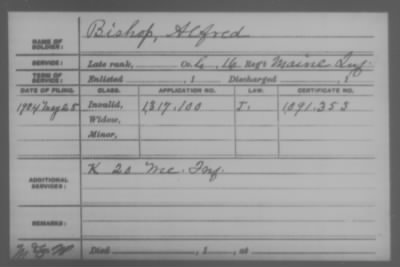 NAME OF SOLDIER: Bishop, Alfred
SERVICE: Late rank, Co. G, 16 Reg't Maine Inf.
TERM OF SERVICE: Enlisted , 1 Discharged , 1
DATE OF FILING. CLASS. APPLICATION NO. LAW. CERTIFICATE NO.
1904 May 25 Invalid, 1,317,100 I. 1,091,353
Widow,
Minor,
ADDITIONAL SERVICES: K 20 Me. Inf.
REMARKS:
Died , 1 , at